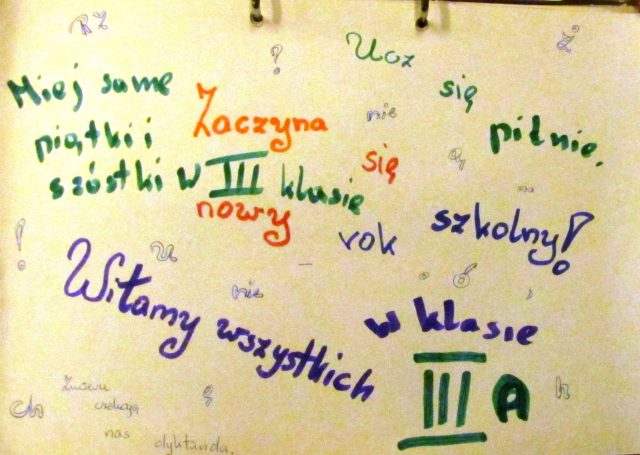 RŻ
?
Ż
Ucz się pilnie.
nie
ą
Miej same
piątki i
szóstki w III klasie
Zaczyna
się
nowy
rok szkolny!
!
u
nie
ó
Witamy wszystkich
w klasie
III A
Ch
Znowu
czekają
nas dyktanda.
ę
h